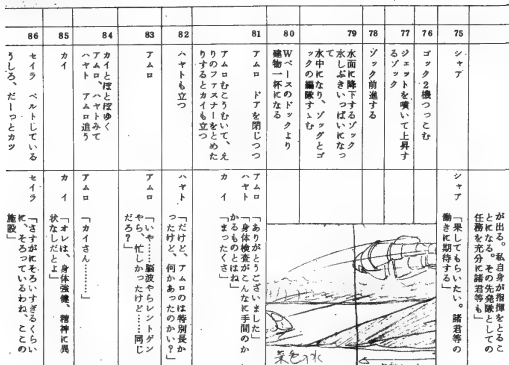 が出る。私自身が指揮をとるこ
とになる。その先発隊としての
任務を充分に諸君等も」
75
シャア
シャア「果してもらいたい。諸君等の
働きに期待する」
76
ゴック2機つっこむ
77
ジェットを噴いて上昇す
るゾック
78
ゾック前進する
79
水面に降下するゾック
水しぶきいっぱいになっ
て
水中になり、ゾックとゴ
ックの編隊すゝむ
80
Wベースのドックより
建物一杯になる
81
アムロ ドアを閉じつつ
アムロむこうむいて、え
りのファスナーをとめた
りするとカイも立つ
アムロ「ありがとうございました」
カイ「身体検査がこんなに手間のか
かるものとはね」
「まったくさ」
82
ハヤトも立つ
ハヤト「だけど、アムロのは特別長か
ったけど、何かあったのかい?」
83
アムロ
アムロ「いや……脳波やらレントゲン
やら、忙しかったけど……同じ
だろ?」
84
カイとぼとぼゆく
アムロ、ハヤトみて
ハヤト アムロ追う
アムロ「カイさん………」
85
カイ
カイ「オレは、身体強健、精神に異
状なしだとよ」
86
セイラ ベルトしている
うしろ、だーっとカツ
セイラ「さすがにそろいすぎるくらい
に、そろっているわね、ここの
施設」